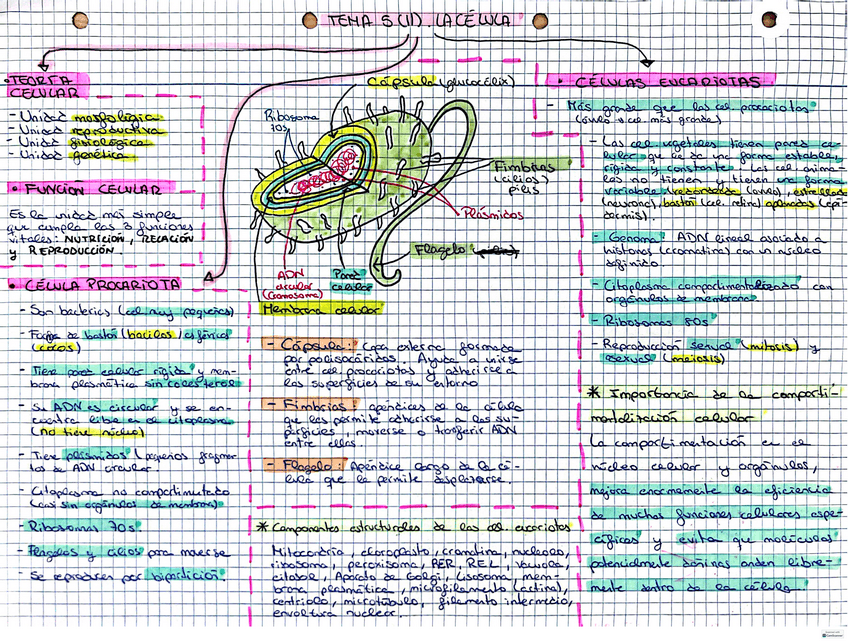 TEMA 5 (II). LA CÉLULA
• TEORÍA
CELULAR
- Unidad morfológica
- Unidad reproductiva
- Unidad fisiológica
- Unidad genética
• FUNCIÓN CELULAR
Es la unidad más simple
que cumpla las 3 funciones
vitales: NUTRICIÓN, RELACIÓN
y REPRODUCCIÓN.
• CÉLULA PROCARIOTA
- Son bacterias (cel muy pequeñas)
- Forma de bastón (bacilos) esférica
(cocos)
- Tiene pared celular rígida y mem-
brana plasmática sin colesterol
- Su ADN es circular y se en-
cuentra libre en el citoplasma
(no tiene núcleo)
- Tiene plásmidos (pequeños fragmen-
tos de ADN circular.
- Citoplasma no compartimentado
(casi sin orgánulos de membrana)
- Ribosomas 70s
- Flagelos y cilios para moverse
- Se reproducen por bipartición.
Cápsula (glucocálix)
Ribosoma
70s
Fimbrias
(cilios)
pilis
Plásmidos
Flagelo
ADN
circular
(cromosoma)
Pared
celular
Membrana celular
- Cápsula: Capa externa formada
por polisacáridos. Ayuda a unirse
entre cel procariotas y adherirse a
las superficies de su entorno
- Fimbrias: apéndices de la célula
que les permite adherirse a las su-
perficies, moverse o transferir ADN
entre ellas.
- Flagelo: Apéndice largo de la cé-
lula que la permite desplazarse.
* Componentes estructurales de las cel. eucariotas
Mitocondria, cloroplasto, cromatina, nucleolo,
ribosoma, peroxisoma, RER, REL, vacuola,
citosol, Aparato de Golgi, Lisosoma, mem-
brana plasmática, microfilamento (actina),
centriolo, microtúbulo, filamento intermedio,
envoltura nuclear.
• CÉLULAS EUCARIOTAS
- Más grande que las cel. procariotas
(óvulo → cel. más grande)
- Las cel vegetales tienen pared ce-
lular que le da una forma estable,
rígida y constante. Las cel anima-
les no tienen y tienen una forma
variable (redondeada (óvulo), estrellada
(neurona), bastón (cel. retina) aplanadas (epi-
dermis).
- Genoma: ADN lineal asociado a
histonas (cromatina) con un núcleo
definido.
- Citoplasma compartimentalizado con
orgánulos de membrana.
- Ribosomas 80s
- Reproducción sexual (mitosis) y
asexual (meiosis)
* Importancia de la comparti-
mentalización celular
La compartimentación en el
núcleo celular y orgánulos,
mejora enormemente la eficiencia
de muchas funciones celulares espe-
cíficas y evita que moléculas
potencialmente dañinas anden libre-
mente dentro de la célula.